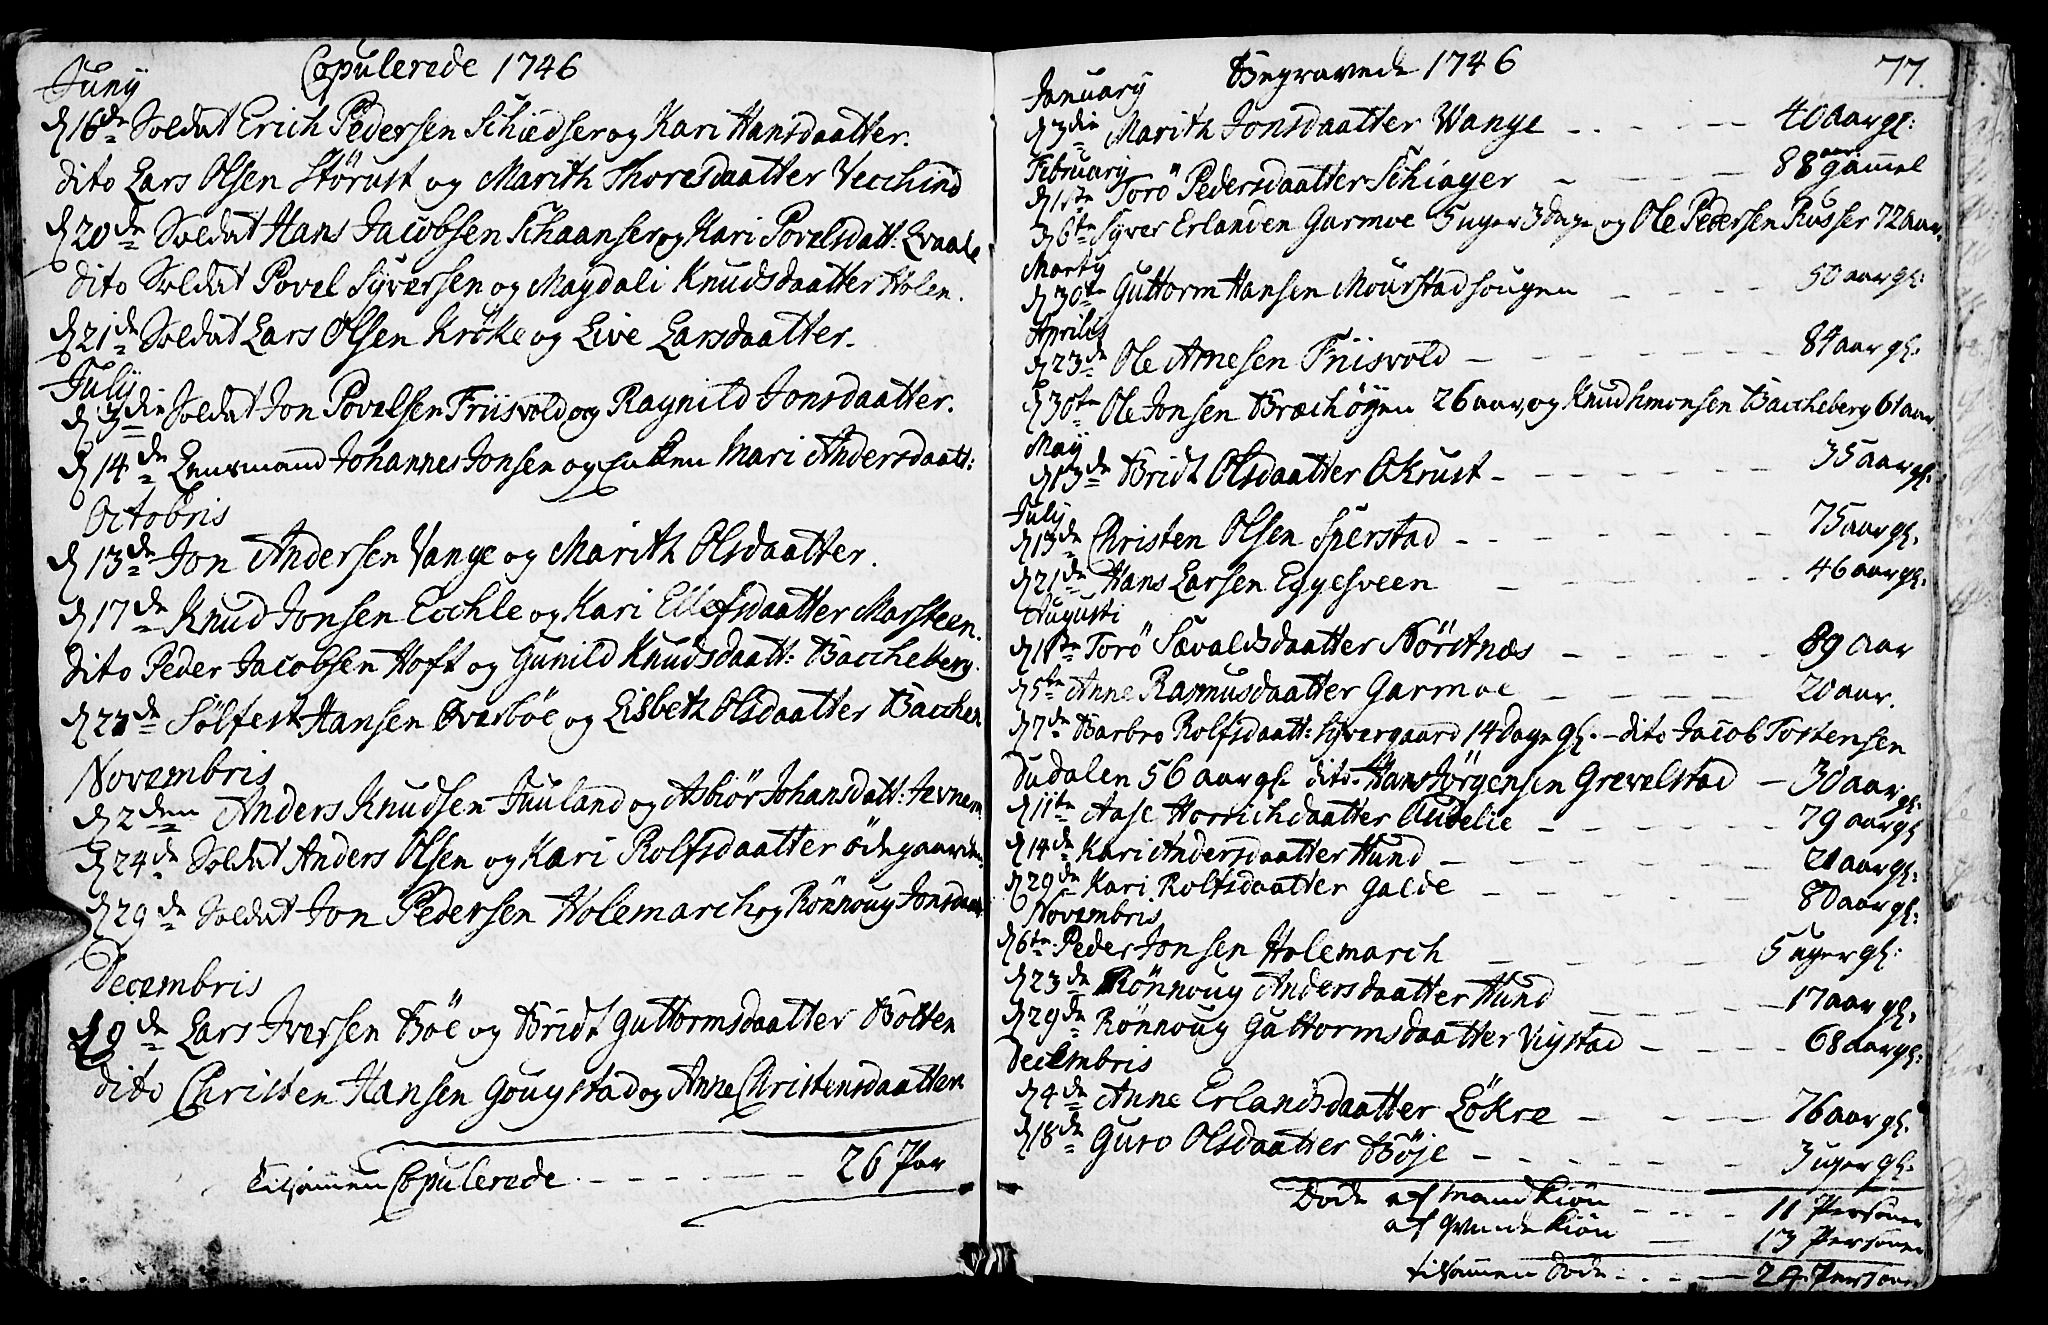 Copulerede 1746
Juny
d 16de Soldat Erich Pedersen Schiedser og Kari Hansdaatter.
dito Lars Olsen Störust og Marith Thoresdaatter Vecchind
d 20de Soldat Hans Jacobsen Schaanser og Kari Povelsdatt: Qvaale
dito Soldat Povel Syversen og Magdali Knudsdaatter Holen.
d 21de Soldat Lars Olsen Kröke og Live Larsdaatter.
July
d 3die Soldat Jon Povelsen Friisvold og Ragnild Jonsdaatter.
d 14de Lensmand Johannes Jonsen og Enken Mari Andersdaatt:
Octobris
d 13de Jon Andersen Vange og Marith Olsdaatter.
d 17de Knud Jonsen Lochle og Kari Ellefsdaatter Marsteen.
dito Peder Jacobsen Hoft og Gunild Knudsdaatt: Baccheberg.
d 23de Sölfest Hansen Överböe og Lisbeth Olsdaatter Bacchen
Novembris
d 2den Anders Knudsen Juuland og Asbiör Johansdatt: Jevnem
d 24de Soldat Anders Olsen og Kari Rolfsdaatter ödegaarden.
d 29de Soldat Jon Pedersen Holemarch og Rönnoug Jonsdaat
Decembris
d 9de Lars Iversen Böe og Bridt Guttormsdaatter Botten
dito Christen Hansen Gougstad og Anne Christensdaatter
Tilsammen Copulerede - - - - - - 26 Par
Begravede 1746 77.
January
d 3die Marith Jonsdaatter Wange - - - - - 40 aar gl:
February
d 1ste Torö Pedersdaatter Schiager - - - - 88 aar gammel
d 6te Syver Erlandsen Garmoe 5 uger 3 dage og Ole Pedersen Russer 72 aar.
Martij
d 30te Guttorm Hansen Mourstadhougen - - - - 50 aar gl:
Aprilis
d 23de Ole Arnesen Friisvold - - - - - - - 84 aar gl.
d 30te Ole Jonsen Bræchögen 26 aar, og Knud Simonsen Baccheberg 61 aar.
May
d 13de Bridt Olsdaatter Okrust - - - - - - 35 aar gl.
July
d 13de Christen Olsen Sperstad - - - - - - - 75 aar gl.
d 21de Hans Larsen Eggesveen - - - - - - 46 aar gl.
Augusti
d 1ste Torö Sævaldsdaatter Nörstnæs - - - - - 89 aar
d 5te Anne Rasmusdaatter Garmoe - - - - 20 aar.
d 7de Barbro Rolfsdaatt: Syvergaard 14 Dage gl. - dito Jacob Tostensen
Dudalen 56 aar gl. dito Hans Jörgensen Grevelstad - 30 aar gl.
d 11te Aase Horrichdaatter Audelie - - - - - - 79 aar gl
d 14de Kari Andersdaatter Hund - - - - - - 21 aar gl.
d 29de Kari Rolfsdaatter Galde - - - - - - 80 aar gl:
Novembris
d 6te Peder Jonsen Holemarch - - - - - 5 uger gl:
d 23de Rönnoug Andersdaatter Hund - - - - - 17 aar gl.
d 29de Rönnoug Guttormsdaatter Vigstad - - - - 68 aar gl:
Decembris
d 4de Anne Erlandsdaatter Lökre - - - - - 76 aar gl.
d 18de Guro Olsdaatter Böje - - - - - - - 3 uger gl.
Döde af Mand Kiön - - - - 11 Personer
af Qvinde Kiön - - 13 Personer
tilsammen Döde - - - - 24 Personer